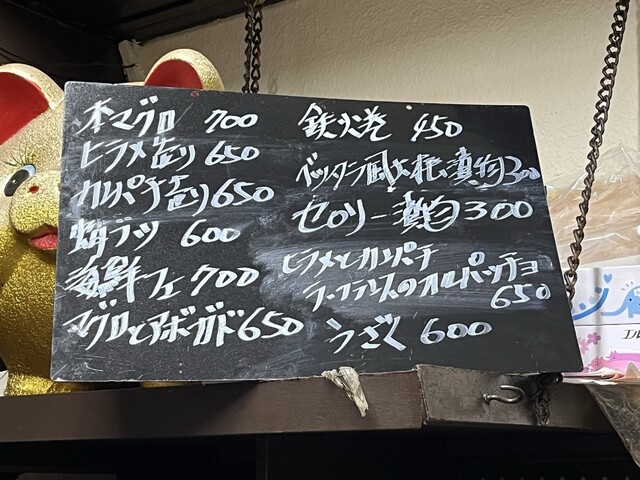 本マグロ 700
ヒラメ造り 650
カンパチ造り 650
蛸ブツ 600
海鮮フェ 700
マグロとアボガド 650
鉄火巻 450
ベッタラ風大根漬物 300
セロリー漬物 300
ヒラメとカンパチ
ラ・フランスのカルパッチョ
650
うざく 600